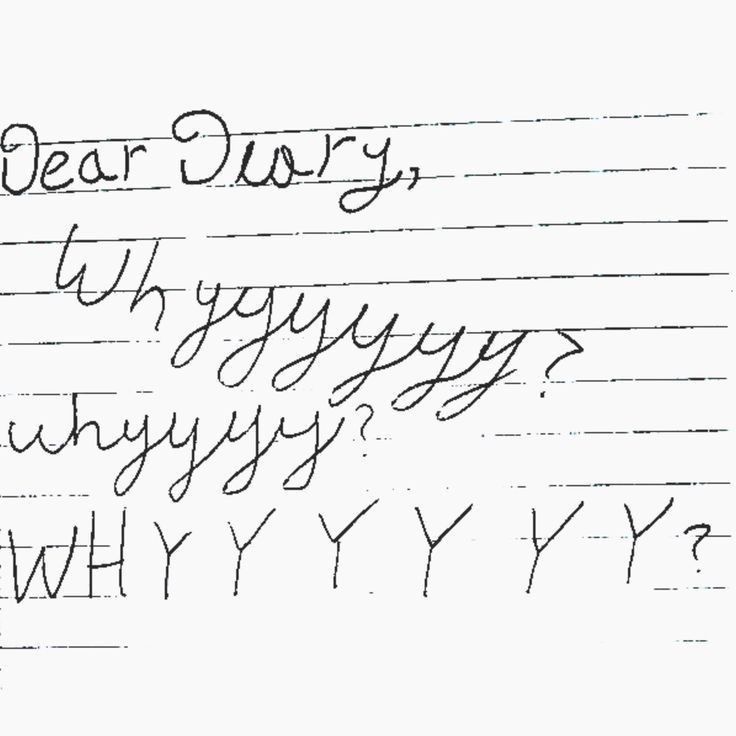 Dear Diary,
Whyyyyyy?
whyyyy?
WHYYYYYY?